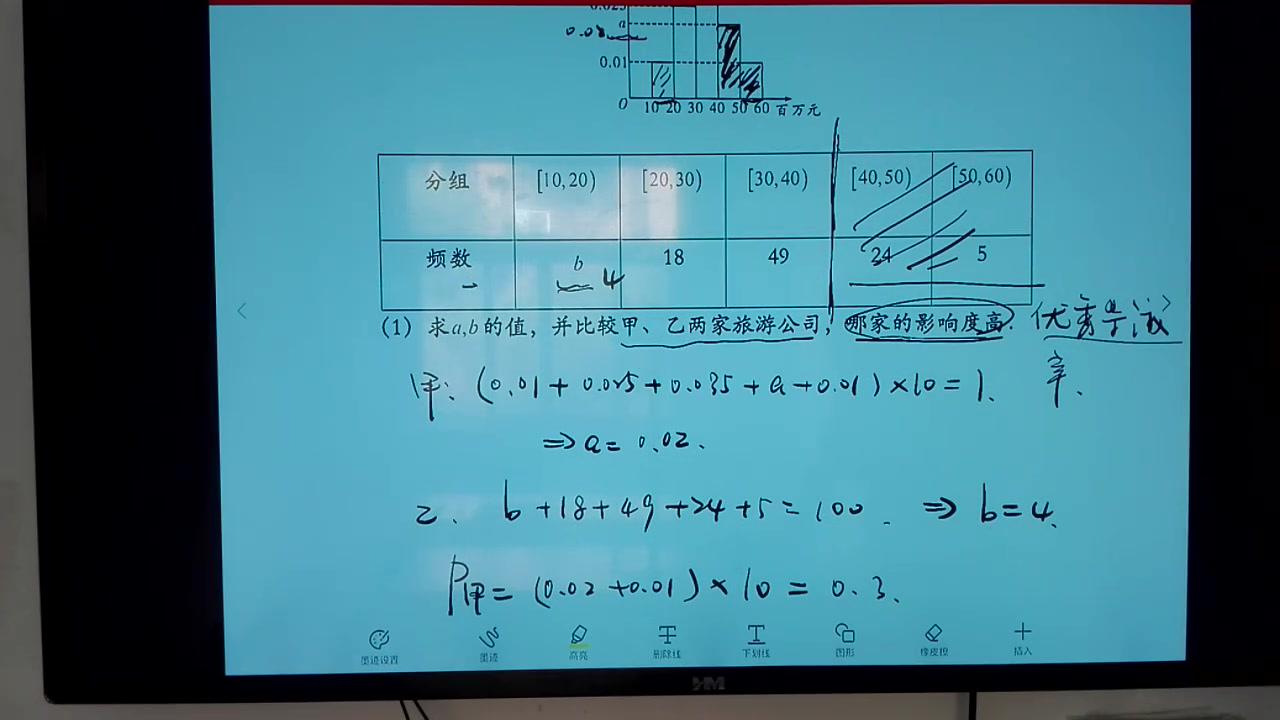 0.025
a
0.02
0.01
O 10 20 30 40 50 60 百万元
分组 [10,20) [20,30) [30,40) [40,50) [50,60)
频数 b 4 18 49 24 5
(1) 求a,b的值，并比较甲、乙两家旅游公司，哪家的影响度高. 优秀导游
率.
甲: (0.01+0.025+0.035+a+0.01)×10=1.
⇒a=0.02.
乙. b+18+49+24+5=100. ⇒ b=4.
P甲=(0.02+0.01)×10=0.3.
墨迹设置 墨迹 高亮 删除线 下划线 图形 橡皮擦 插入
HM